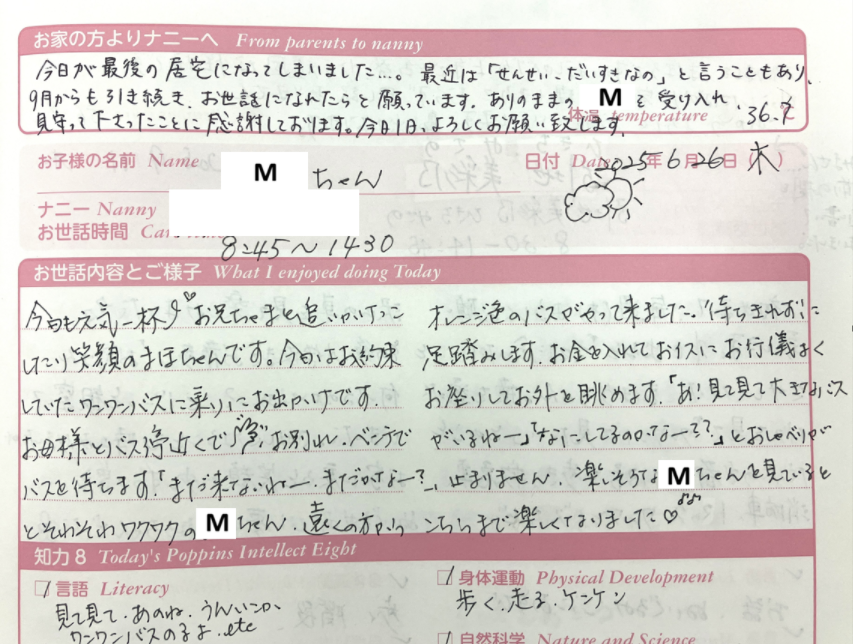 お家の方よりナニーへ From parents to nanny
今日が最後の居宅になってしまいました…。最近は「せんせい、だいすきなの」と言うこともあり、
9月からも引き続き、お世話になれたらと願っています。ありのままの M を受け入れ、
見守って下さったことに感謝しております。今日1日、よろしくお願い致します。
体温 temperature 36.7
お子様の名前 Name M ちゃん
日付 Date 2025年6月26日(木)
ナニー Nanny
お世話時間 Care
8:45〜14:30
お世話内容とご様子 What I enjoyed doing Today
今日も元気一杯♡お兄ちゃまと追いかけっこ
したり笑顔のまほちゃんです。今日はお約束
していたワンワンバスに乗りにお出かけです。
お母様とバス停近くでお別れ、ベンチで
バスを待ちます「まだ来ないねー、まだかなー?」
とそわそわワクワクの M ちゃん、遠くの方から
オレンジ色のバスがやって来ました。“待ちきれず”に
足踏みします、お金を入れてお行儀よく
お座りしてお外を眺めます。「あ!見て見て大きなバス
がいるねー」「なにしてるのかなーろ?」とおしゃべりが
止まりません、楽しそうな M ちゃんを見ていると
こちらまで楽しくなりました♡
知力8 Today's Poppins Intellect Eight
言語 Literacy
見て見て、あのね、うんいこか、
ワンワンバスのるよ、etc
身体運動 Physical Development
歩く、走る、ケンケン
自然科学 Nature and Science